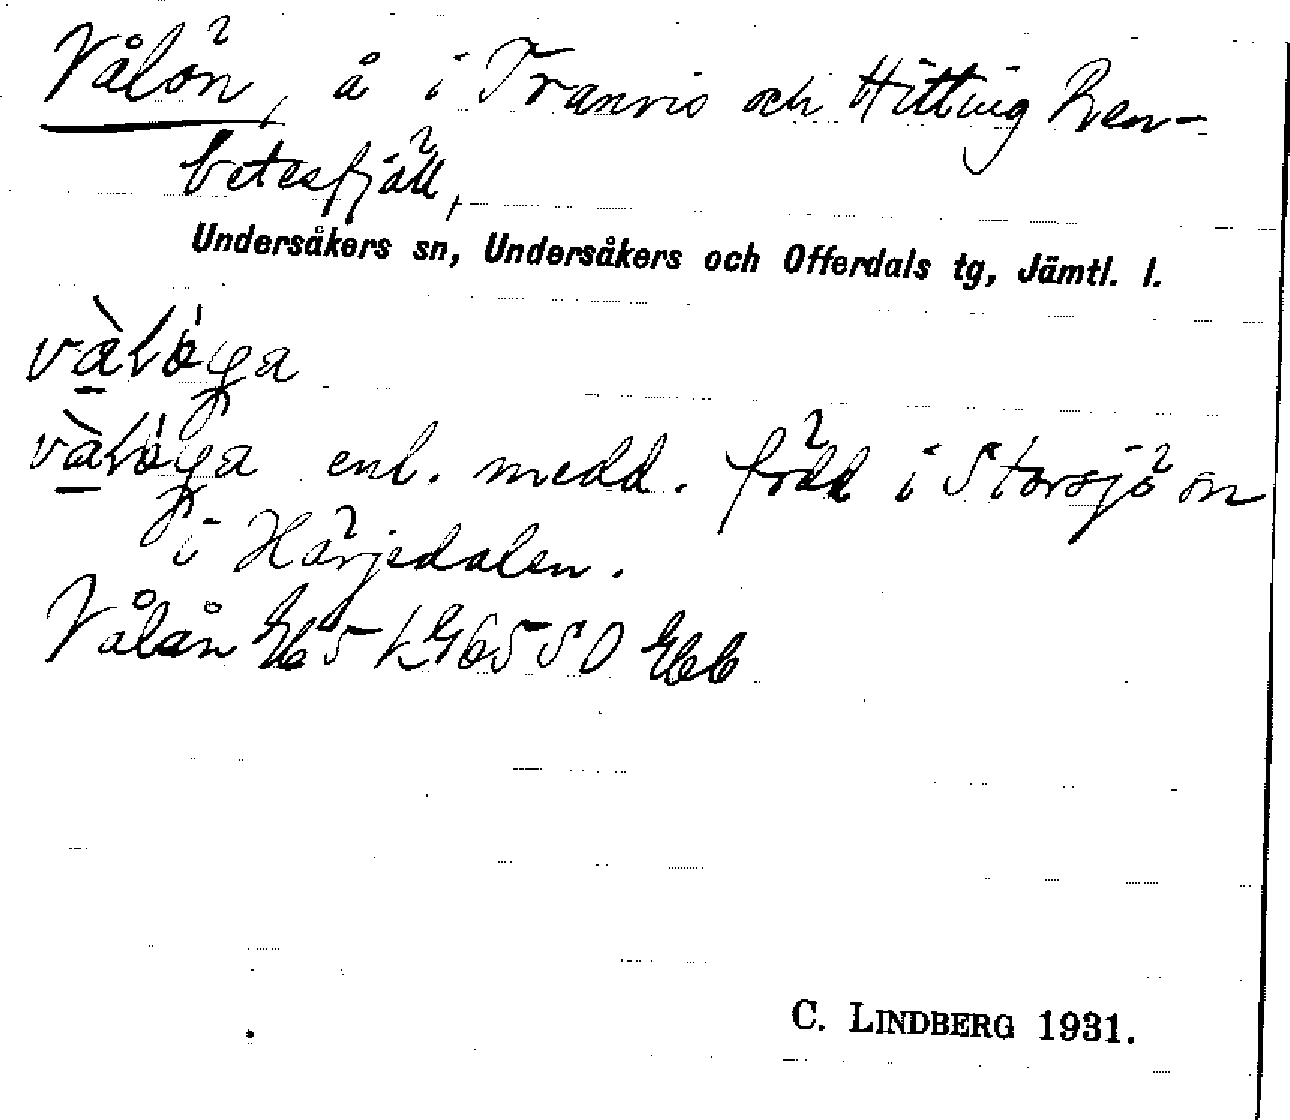 Vålön, å i Tranris och Hitting Ren-
betesfjäll,
Undersåkers sn, Undersåkers och Offerdals tg, Jämtl. l.
enl. medd. född i Storsjö sn
i Härjedalen.
Vålån
C. LINDBERG 1931.